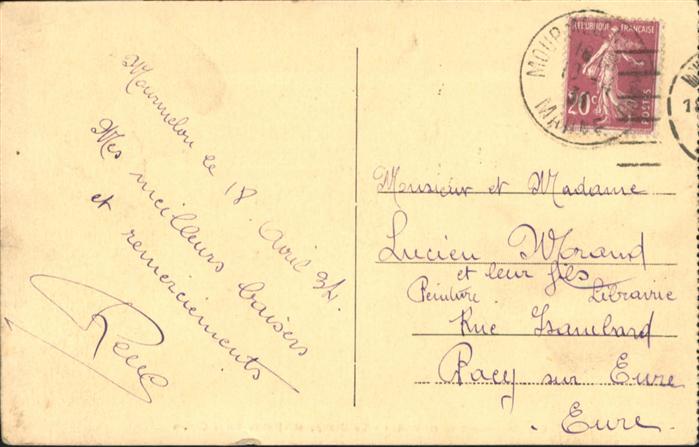 Mourmelon le 18 Avril 34.
Mes meilleurs baisers
et remerciements
René
RÉPUBLIQUE FRANÇAISE
20c
POSTES
MARNE
Monsieur et Madame
Lucien Morand
et leur fils
Peinture Librairie
Rue Isambard
Pacy sur Eure
Eure.